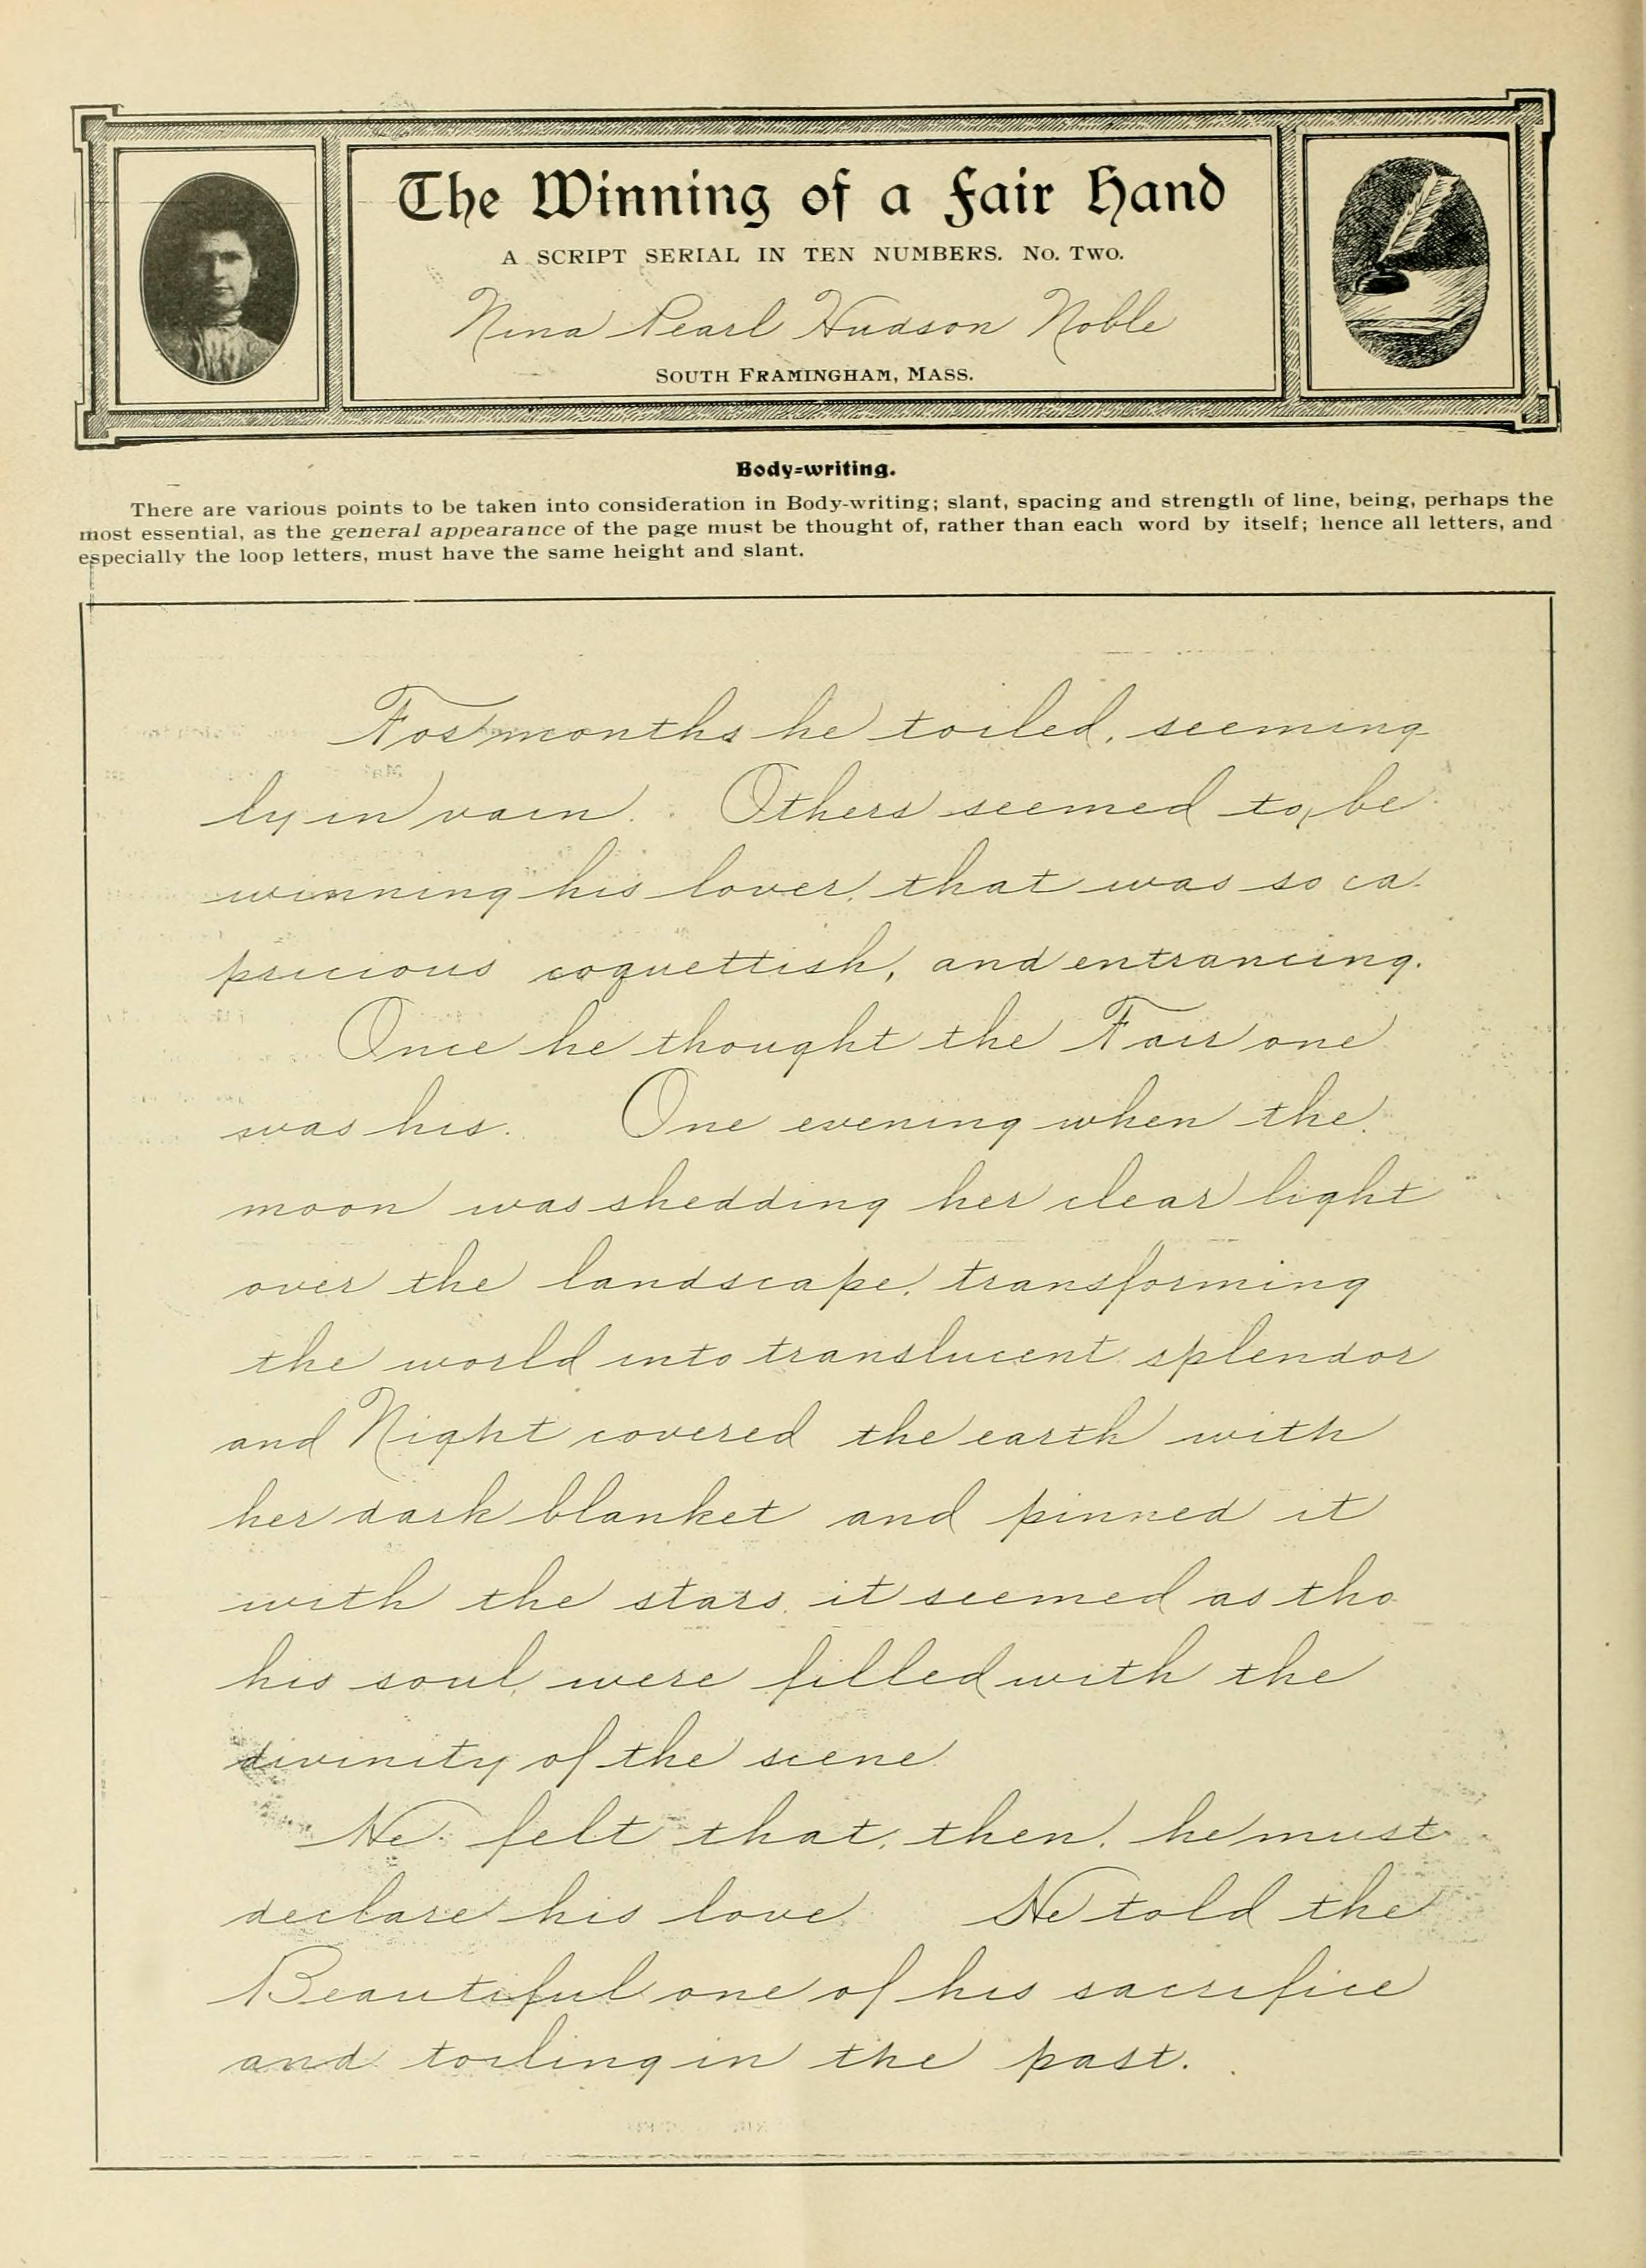 The Winning of a Fair Hand
A SCRIPT SERIAL IN TEN NUMBERS. No. Two.
Nina Pearl Hudson Noble
SOUTH FRAMINGHAM, MASS.
Body-writing.
There are various points to be taken into consideration in Body-writing; slant, spacing and strength of line, being, perhaps the
most essential, as the general appearance of the page must be thought of, rather than each word by itself; hence all letters, and
especially the loop letters, must have the same height and slant.
For months he toiled, seeming
ly in vain. Others seemed to be
winning his lover, that was so ca-
pricious coquettish, and entrancing.
Once he thought the Fair one
was his. One evening when the
moon was shedding her clear light
over the landscape, transforming
the world into translucent splendor
and Night covered the earth with
her dark blanket and pinned it
with the stars, it seemed as tho
his soul, were filled with the
divinity of the scene
He felt that, then, he must
declare his love. He told the
Beautiful one of his sacrifice
and toiling in the past.